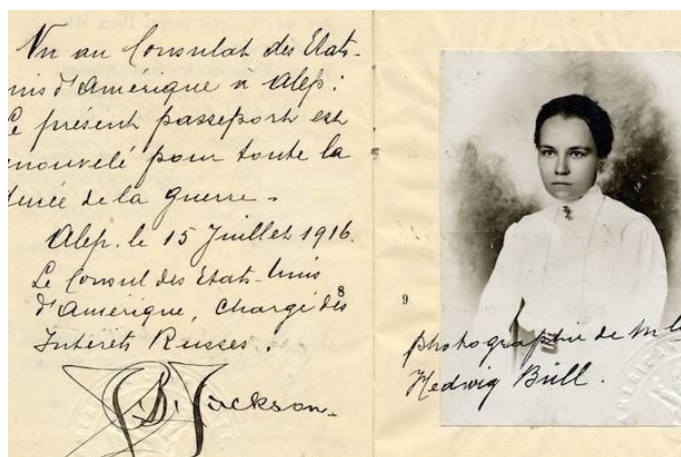 Vu au Consulat des Etats-
nis d'Amérique à Alep:
e présent passeport est
nouvelé pour toute la
urée de la guerre.
Alep. le 15 Juillet 1916.
Le Consul des Etats-Unis
d'Amérique, Chargé des
Intérêts Russes.
J.B. Jackson.
8
9
photographie de Mlle
Hedwig Büll.
AMERICAN